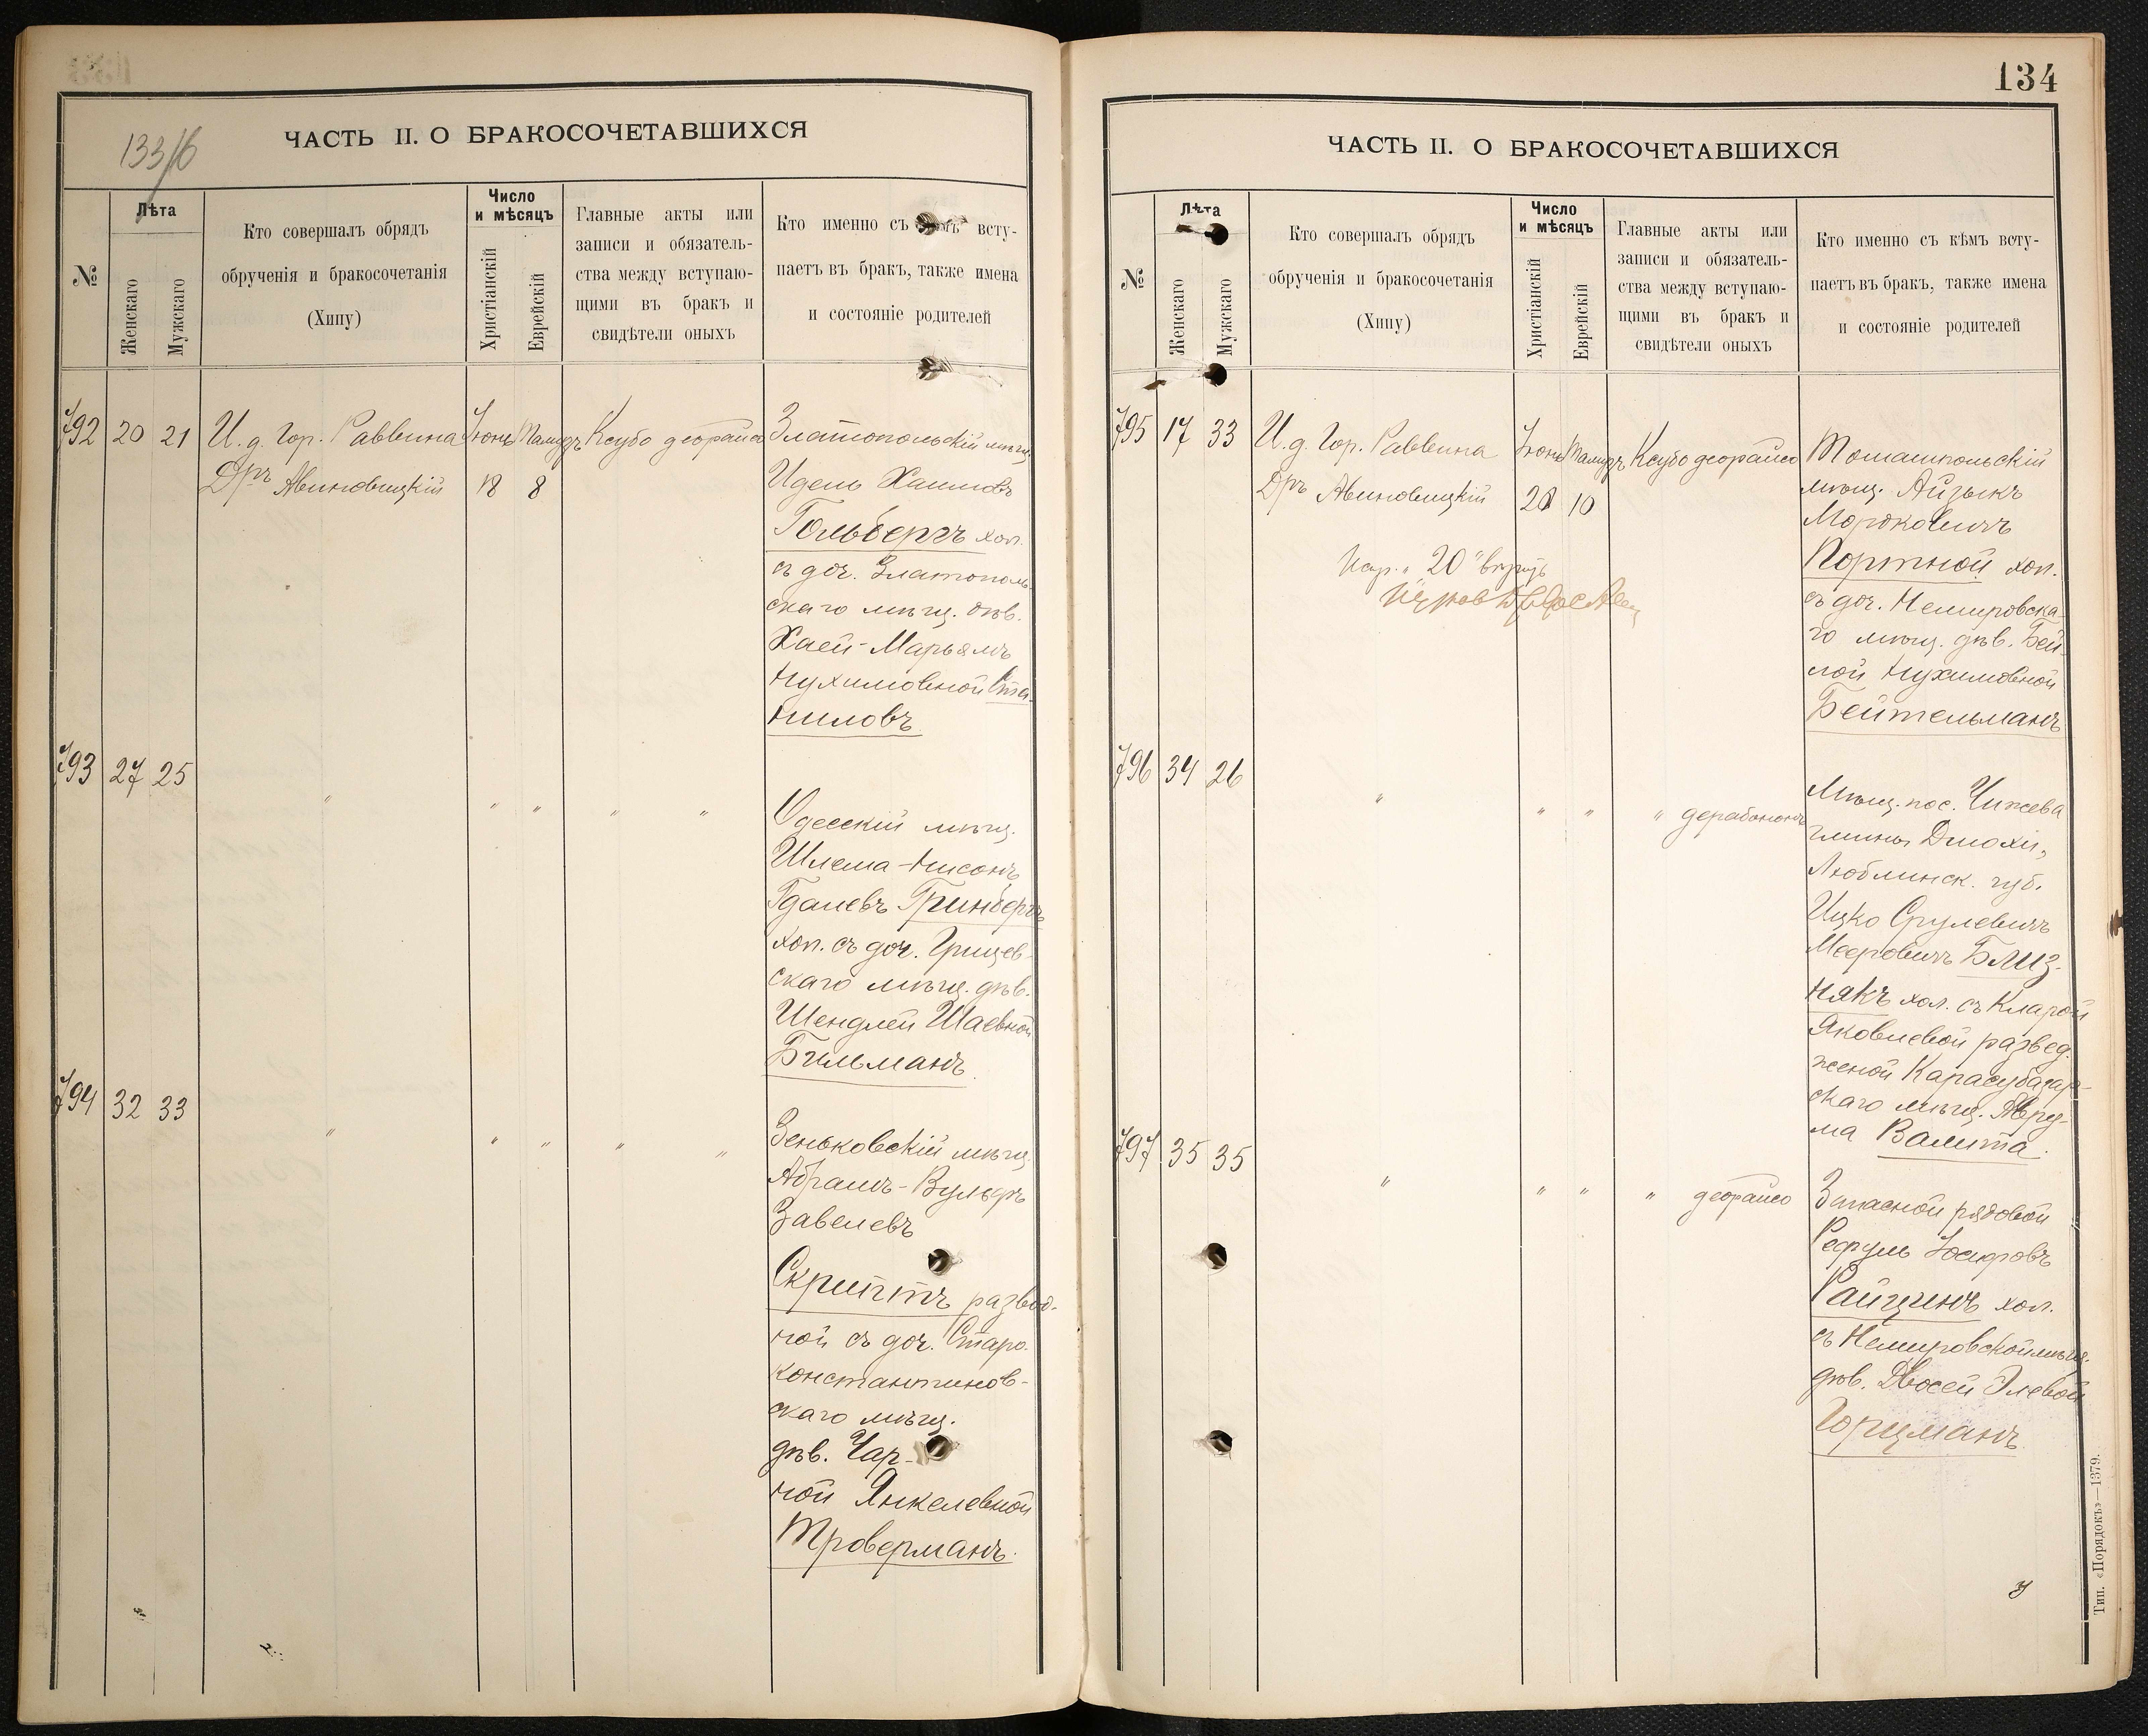 133/б
ЧАСТЬ II. О БРАКОСОЧЕТАВШИХСЯ
№
Лѣта
Женскаго
Мужскаго
Кто совершалъ обрядъ
обрученія и бракосочетанія
(Хипу)
Число
и мѣсяцъ
Христіанскій
Еврейскій
Главные акты или
записи и обязатель-
ства между вступаю-
щими въ бракъ и
свидѣтели оныхъ
Кто именно съ всту-
паетъ въ бракъ, также имена
и состояніе родителей
792 20 21 И. д. Гор. Раввина Іюнь Тамузъ Ксубо деорайсо
Дръ Авиновицкій 18 8
Златопольскій мѣщ.
Идель Хаимовъ
Гольбергъ хол.
съ доч. Златополь-
скаго мѣщ. дѣв.
Хаей-Марьямъ
Нухимовной Ста-
ниловъ
793 27 25 " " " " "
Одесскій мѣщ.
Шлема-Нисонъ
Гдалевъ Гринбергъ
хол. съ доч. Грицев-
скаго мѣщ. дѣв.
Шендлей Шаевной
Бильманъ
794 32 33 " " " " "
Зеньковскій мѣщ.
Абрамъ-Вульфъ
Завелевъ
Скриптъ развод-
ной съ доч. Старо-
константинов-
скаго мѣщ.
дѣв. Чар-
ной Янкелевной
Троверманъ.
134
ЧАСТЬ II. О БРАКОСОЧЕТАВШИХСЯ
№
Лѣта
Женскаго
Мужскаго
Кто совершалъ обрядъ
обрученія и бракосочетанія
(Хипу)
Число
и мѣсяцъ
Христіанскій
Еврейскій
Главные акты или
записи и обязатель-
ства между вступаю-
щими въ бракъ и
свидѣтели оныхъ
Кто именно съ кѣмъ всту-
паетъ въ бракъ, также имена
и состояніе родителей
795 17 33 И. д. Гор. Раввина Іюнь Тамузъ Ксубо деорайсо
Дръ Авиновицкій 20 10
"20"
Томашпольскій
мѣщ. Айзыкъ
Мордковичъ
Портной хол.
съ доч. Немировска-
го мѣщ. дѣв. Бей-
лой Нухимовной
Бейтельманъ
796 34 26 " " " " дерабононъ
Мѣщ. пос. Чижева
гмины Дмохи,
Люблинск. губ.
Ицко Срулевичъ
Мееровичъ Близ-
някъ хол. съ Кларой
Яковлевой развед.
женой Карасубазар-
скаго мѣщ. Авру-
ма Валита.
797 35 35 " " " " деорайсо
Запасной рядовой
Рефуль Іосифовъ
Райцинъ хол.
съ Немировской мѣщ.
дѣв. Двосей Элевой
Горцманъ
Тип. «Порядокъ»—1379.